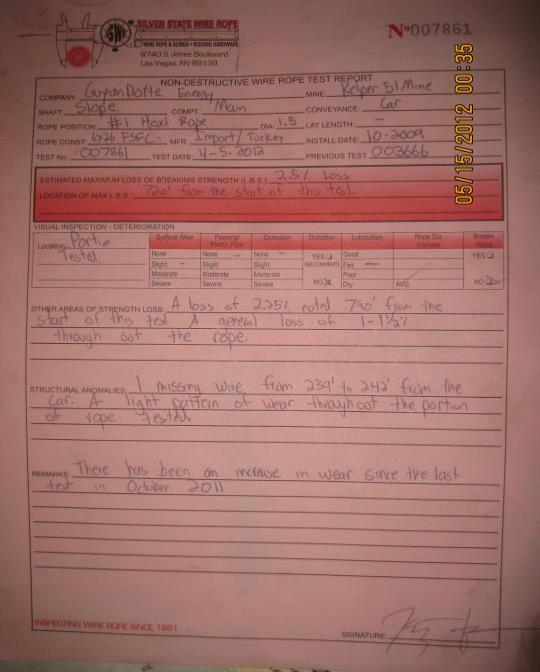 SILVER STATE WIRE ROPE
SWR
WIRE ROPE & SLINGS • RIGGING HARDWARE
8740 S Jones Boulevard
Las Vegas, NV 89139
No007861
05/15/2012 00:35
NON-DESTRUCTIVE WIRE ROPE TEST REPORT
COMPANY: GuyanDotte Energy MINE: Kelper 51 Mine
SHAFT: Slope COMPT.: Main CONVEYANCE: Car
ROPE POSITION: #1 Head Rope DIA: 1.5 LAY LENGTH: —
ROPE CONST: 6x26 FSFC MFR. Import/Turkey INSTALL DATE: 10-2009
TEST No: 007861 TEST DATE: 4-5-2012 PREVIOUS TEST 003666
ESTIMATED MAXIMUM LOSS OF BREAKING STRENGTH (L B S): 2.5% Loss
LOCATION OF MAX L B S: 720' from the start of this test
VISUAL INSPECTION - DETERIORATION
Location: Portion Tested
Surface Wear Peening/ Plastic Flow Corrosion Distortion Lubrication Rope Dia (Inches) Broken Wires
None None — None — YES Good YES
Slight — Slight Slight SEE COMMENTS Fair —
Moderate Moderate Moderate Poor
Severe Severe Severe NO Dry AVG NO
OTHER AREAS OF STRENGTH LOSS: A loss of 2.25% noted 790' from the
start of this test A general loss of 1-1½%
through out the rope.
STRUCTURAL ANOMALIES: 1 missing wire from 239' to 242' from the
car. A light pattern of wear throughout the portion
of rope tested
REMARKS: There has been an increase in wear since the last
test in October 2011
INSPECTING WIRE ROPE SINCE 1981
SIGNATURE: